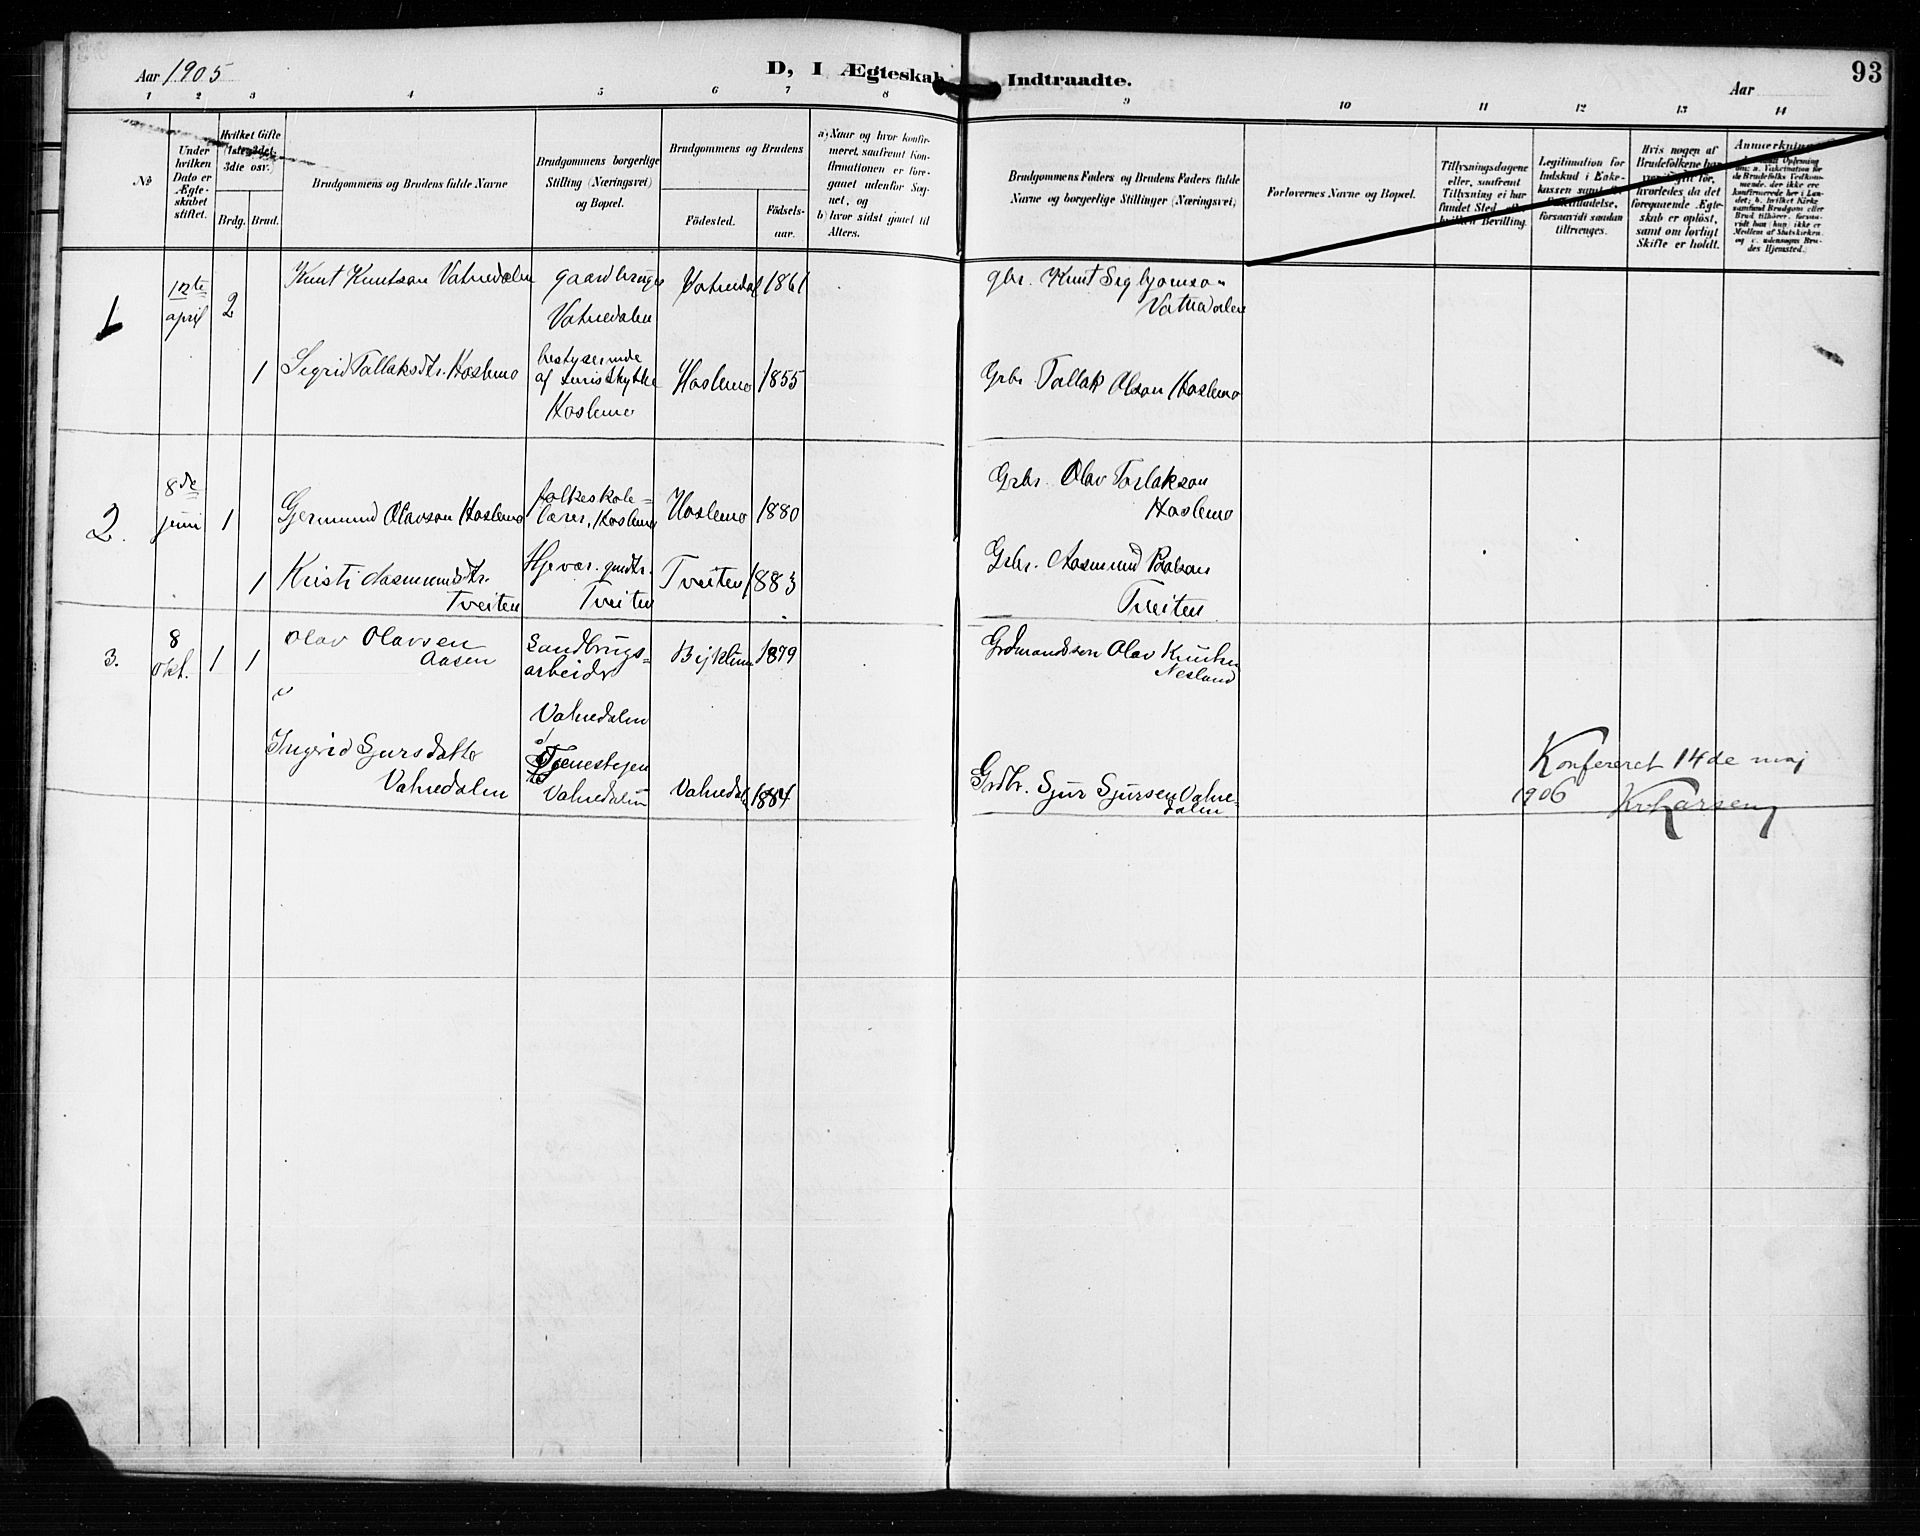 93
Aar 1905
D, I Ægteskab Indtraadte.
Aar
1 2 3 4 5 6 7 8 9 10 11 12 13 14
No
Under hvilken Dato er Ægteskabet stiftet.
Hvilket Gifte (1ste, 2det, 3die osv.)
Brdg. Brud.
Brudgommens og Brudens fulde Navne
Brudgommens borgerlige Stilling (Næringsvei) og Bopæl.
Brudgommens og Brudens
Födested.
Födselsaar.
a) Naar og hvor konfirmeret, saafremt Konfirmationen er foregaaet udenfor Sognet, og
b) hvor sidst gaaet til Alters.
Brudgommens Faders og Brudens Faders fulde Navne og borgerlige Stillinger (Næringsvei)
Forlovernes Navne og Bopæl.
Tillysningsdagene eller, saafremt Tillysning ei har fundet Sted,
Bevilling.
Legitimation for Indskud i Enkekassen samt
forsaavidt saadan tiltrænges.
Hvis nogen af Brudefolkene har
gift før, hvorledes da det foregaaende Ægteskab er oplöst, samt om lovligt Skifte er holdt.
Anmærkning
1
12te april
2
Knut Knutson Vatnedalen
gaardbruger
Vatnedalen
Vatnedal 1861
gbr. Knut Sigbjørnson
Vatnedalen
1
Sigrid Tallaksdtr. Hoslemo
bestyrerinde
af
Hoslemo
Hoslemo 1855
Grbr. Tallak Olson Hoslemo
2.
8de juni
1
Gjermund Olavson Hoslemo
folkeskole=
lærer, Hoslemo
Hoslemo 1880
Grbr. Olav Torlakson
Hoslemo
1
Kristi Aasmundsdtr.
Tveiten
Hjevær. gmdtr.
Tveiten
Tveiten 1883
Grbr. Aasmund
Tveiten
3.
8 Okt.
1 1
Olav Olavsen
Aasen
Landbrugs=
arbeider
Vatnedalen
1879
Olav Knutsen
Nesland
Ingerid Sjursdatter
Vatnedalen
Vatnedalen
Vatnedal 1884
Grdbr. Sjur Sjursen Vatne=
dalen
Konfereret 14de maj
1906 Kr. Larsen